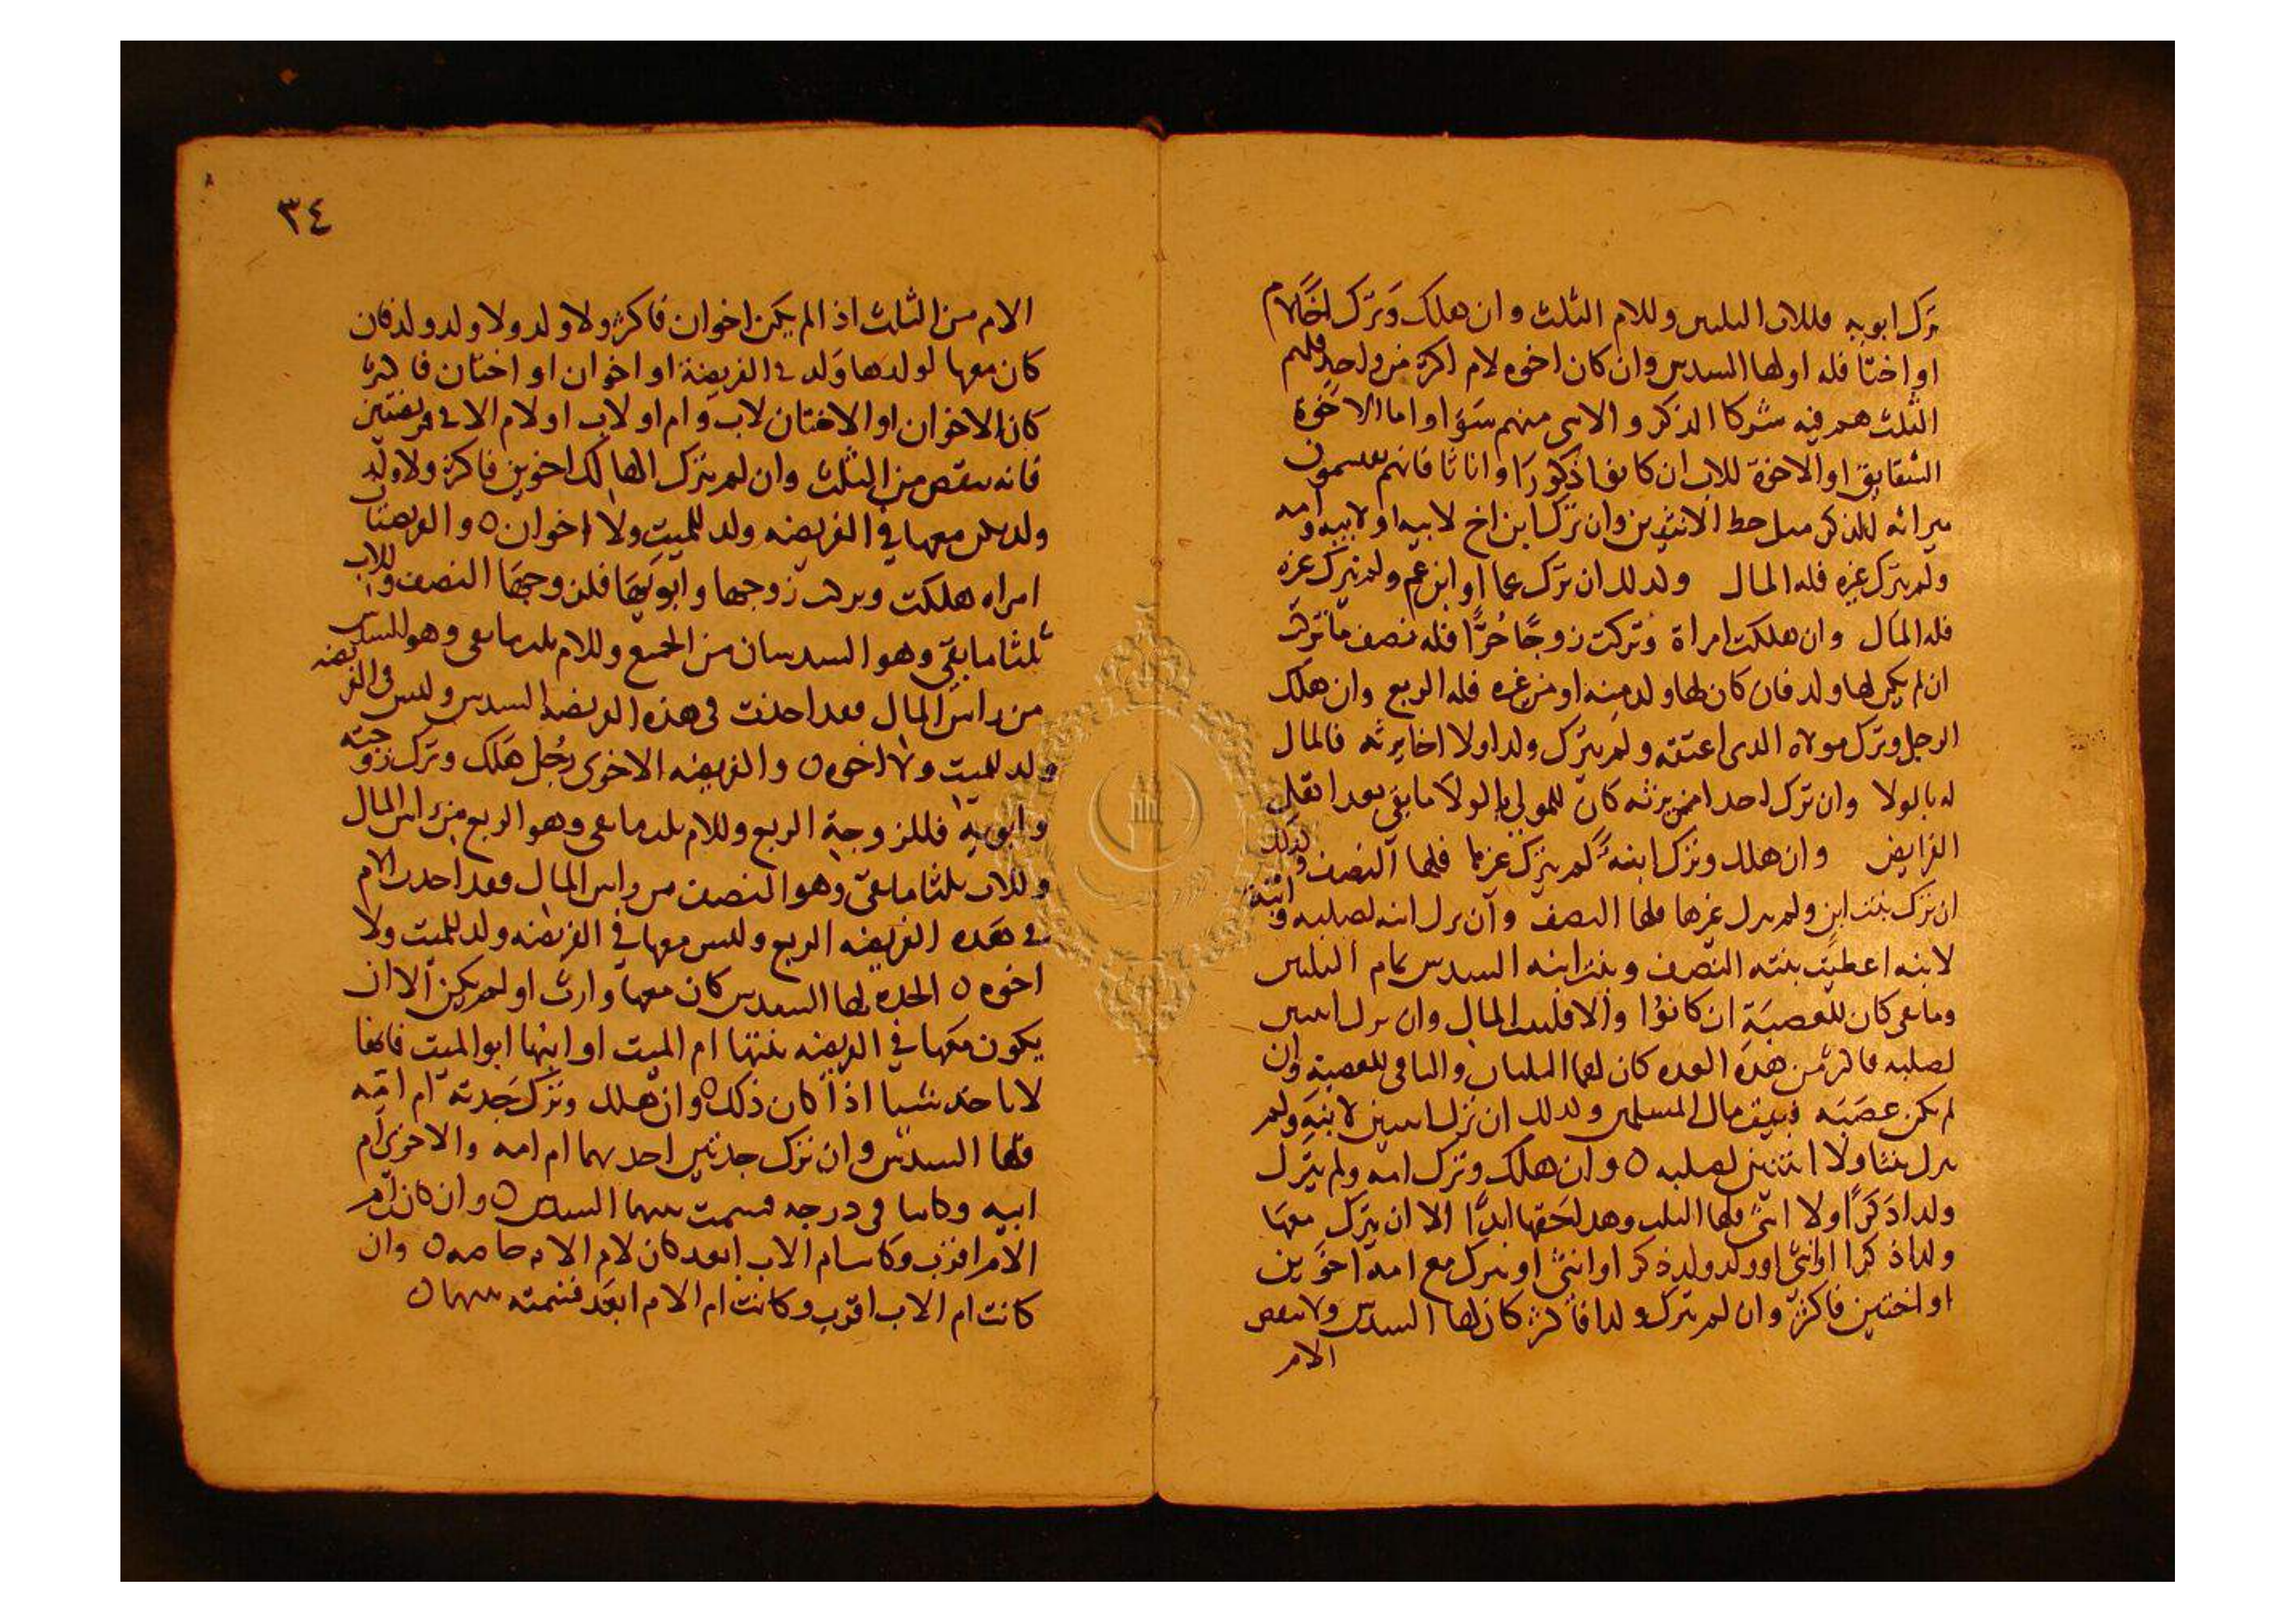 ترك ابويه فللاب الثلثين وللام الثلث وان هلك وَتَرك اخًا لام
او اختا فله او لها السدس وان كان اخوه لام اكثر من واحد فلهم
الثلث هم فيه شركا الذكر والانثى منهم سَوَآ واما الاخوة
الشقايق او الاخوة للاب ان كانوا ذكورًا او اناثا فانهم يقسمون
ميراثه للذكر مثل حظ الانثيين وان ترك ابن اخ لابيه او لابيه وامه
ولم يترك غيره فله المال وكذلك ان ترك عما او ابن عم ولم يترك غيره
فله المال وان هلكت امراة وتركت زوجًا حُرًّا فله نصف ما تركت
ان لم يكن لها ولد فان كان لها ولد منه او من غيره فله الربع وان هلك
الرجل وترك مولاه الذى اعتقه ولم يترك ولدا ولا اخا يرثه فالمال
له بالولا وان ترك احدا ممن يرثه كان للمولى بالولا ما بقى بعد اهل
الفرايض وان هلك وترك ابنه لم يترك غيرها فلها النصف وكذلك
ان ترك بنت ابن ولم يترك غيرها فلها النصف وان ترك ابنه لصلبه وابنة
لابنه اعطيت بنته النصف وبنت ابنه السدس تمام الثلثين
وما بقى كان للعصبَةِ ان كانوُا والا فلبيت المال وان ترك ابنتين
لصلبه فاكثر من هذه العده كان لهما الثلثان والباقى للعصبة وان
لم يكن عصَبَه فبيت مال المسلمين وكذلك ان ترك ابنتين لابنهِ ولم
يترك بنتا ولا اثنتين لصلبه ٥ وان هلك وترك امه ولم يترك
ولدا ذكرًا ولا انثى فلها الثلث وهذا حَقها ابدًا الا ان يترك معهَا
ولدا ذكرا او انثى او ولد ولد ذكر او انثى او يترك مع امه اخوين
او اختين فاكثر وان لم يترك ولدا فاكثر كان لها السدس ولا ينقص
الام
٣٤
الام من الثلث اذا لم يكن اخوان فاكثر ولا ولد ولا ولد ولد فان
كان معها لولدها وَلد فى الفريضة او اخوان او اختان فاكثر
كان الاخوان او الاختان لاب وام او لاب او لام الا فى فريضتين
فانه ينقص من الثلث وان لم يترك الهالك اخوين فاكثر ولا ولد
ولد يكن معها فى الفريضه ولد للميت ولا اخوان ٥ والفريضتان
امراه هلكت وتركت زوجها وابويَهَا فلزوجهَا النصف وللاب
ثلثا ما بقى وهو السدسان من الجميع وللام ثلث ما بقى وهو السدس
من راس المال فقد اخذت فى هذه الفريضه السدس وليس فى الفريضه
ولد للميت ولا اخوه ٥ والفريضه الاخرى رجُل هَلك وترك زوجته
وابويه فللزوجة الربع وللام ثلث ما بقى وهو الربع من راس المال
وللاب ثلثا ما بقى وهو النصف من راس المال فقد اخذت الام
فى هَذه الفريضه الربع وليس معها فى الفريضه ولد للميت ولا
اخوه ٥ الجده لها السدس كان معها وارث او لم يكن الا ان
يكون معَها فى الفريضه بنتها ام الميت او ابنها ابو الميت فانها
لا تاخذ شيا اذا كان ذلك ٥ وان هلك وترك جَدته ام امه
فلها السدس وان ترك جدتين احديهما ام امه والاخرى ام
ابيه وكانتا فى درجه قسمت بينهما السدس ٥ وان كان ام
الام اقرب وكانت ام الاب ابعد كان لام الام خاصه ٥ وان
كانت ام الاب اقرب وكانت ام الام ابعَد قسمته بينهما ٥